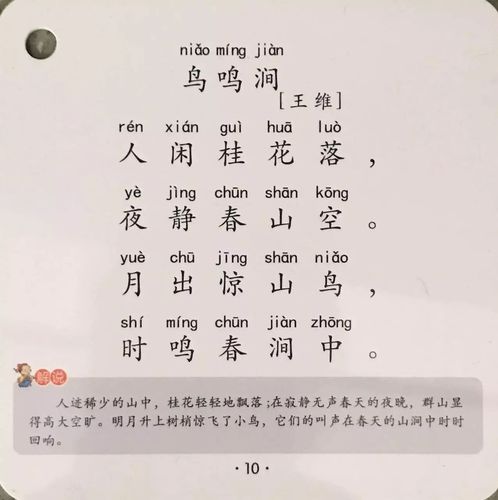 niǎo míng jiàn
鸟鸣涧
[王维]
rén xián guì huā luò
人闲桂花落，
yè jìng chūn shān kōng
夜静春山空。
yuè chū jīng shān niǎo
月出惊山鸟，
shí míng chūn jiàn zhōng
时鸣春涧中。
解说
人迹稀少的山中，桂花轻轻地飘落；在寂静无声春天的夜晚，群山显
得高大空旷。明月升上树梢惊飞了小鸟，它们的叫声在春天的山涧中时时
回响。
·10·